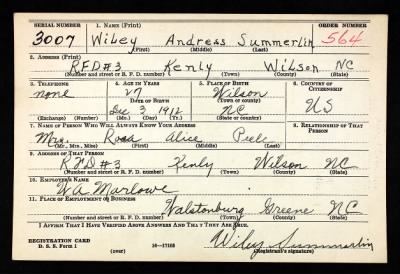 SERIAL NUMBER 1. NAME (Print) ORDER NUMBER
3007 Wiley Andress Summerlin 564
(First) (Middle) (Last)
2. ADDRESS (Print)
RFD#3 Kenly Wilson NC
(Number and street or R. F. D. number) (Town) (County) (State)
3. TELEPHONE 4. AGE IN YEARS 5. PLACE OF BIRTH 6. COUNTRY OF CITIZENSHIP
none 27 Wilson
DATE OF BIRTH (Town or county)
Dec 3 1912 NC US
(Exchange) (Number) (Mo.) (Day) (Yr.) (State or country)
7. NAME OF PERSON WHO WILL ALWAYS KNOW YOUR ADDRESS 8. RELATIONSHIP OF THAT PERSON
Mrs. Rosa Alice Peele
(Mr., Mrs., Miss) (First) (Middle) (Last)
9. ADDRESS OF THAT PERSON
RFD#3 Kenly Wilson NC
(Number and street or R. F. D. number) (Town) (County) (State)
10. EMPLOYER'S NAME
W.A. Marlowe
11. PLACE OF EMPLOYMENT OR BUSINESS
Walstonburg Greene NC
(Number and street or R. F. D. number) (Town) (County) (State)
I AFFIRM THAT I HAVE VERIFIED ABOVE ANSWERS AND THAT THEY ARE TRUE.
REGISTRATION CARD
D. S. S. Form 1 (over) 16-17105 Wiley Summerlin
(Registrant's signature)